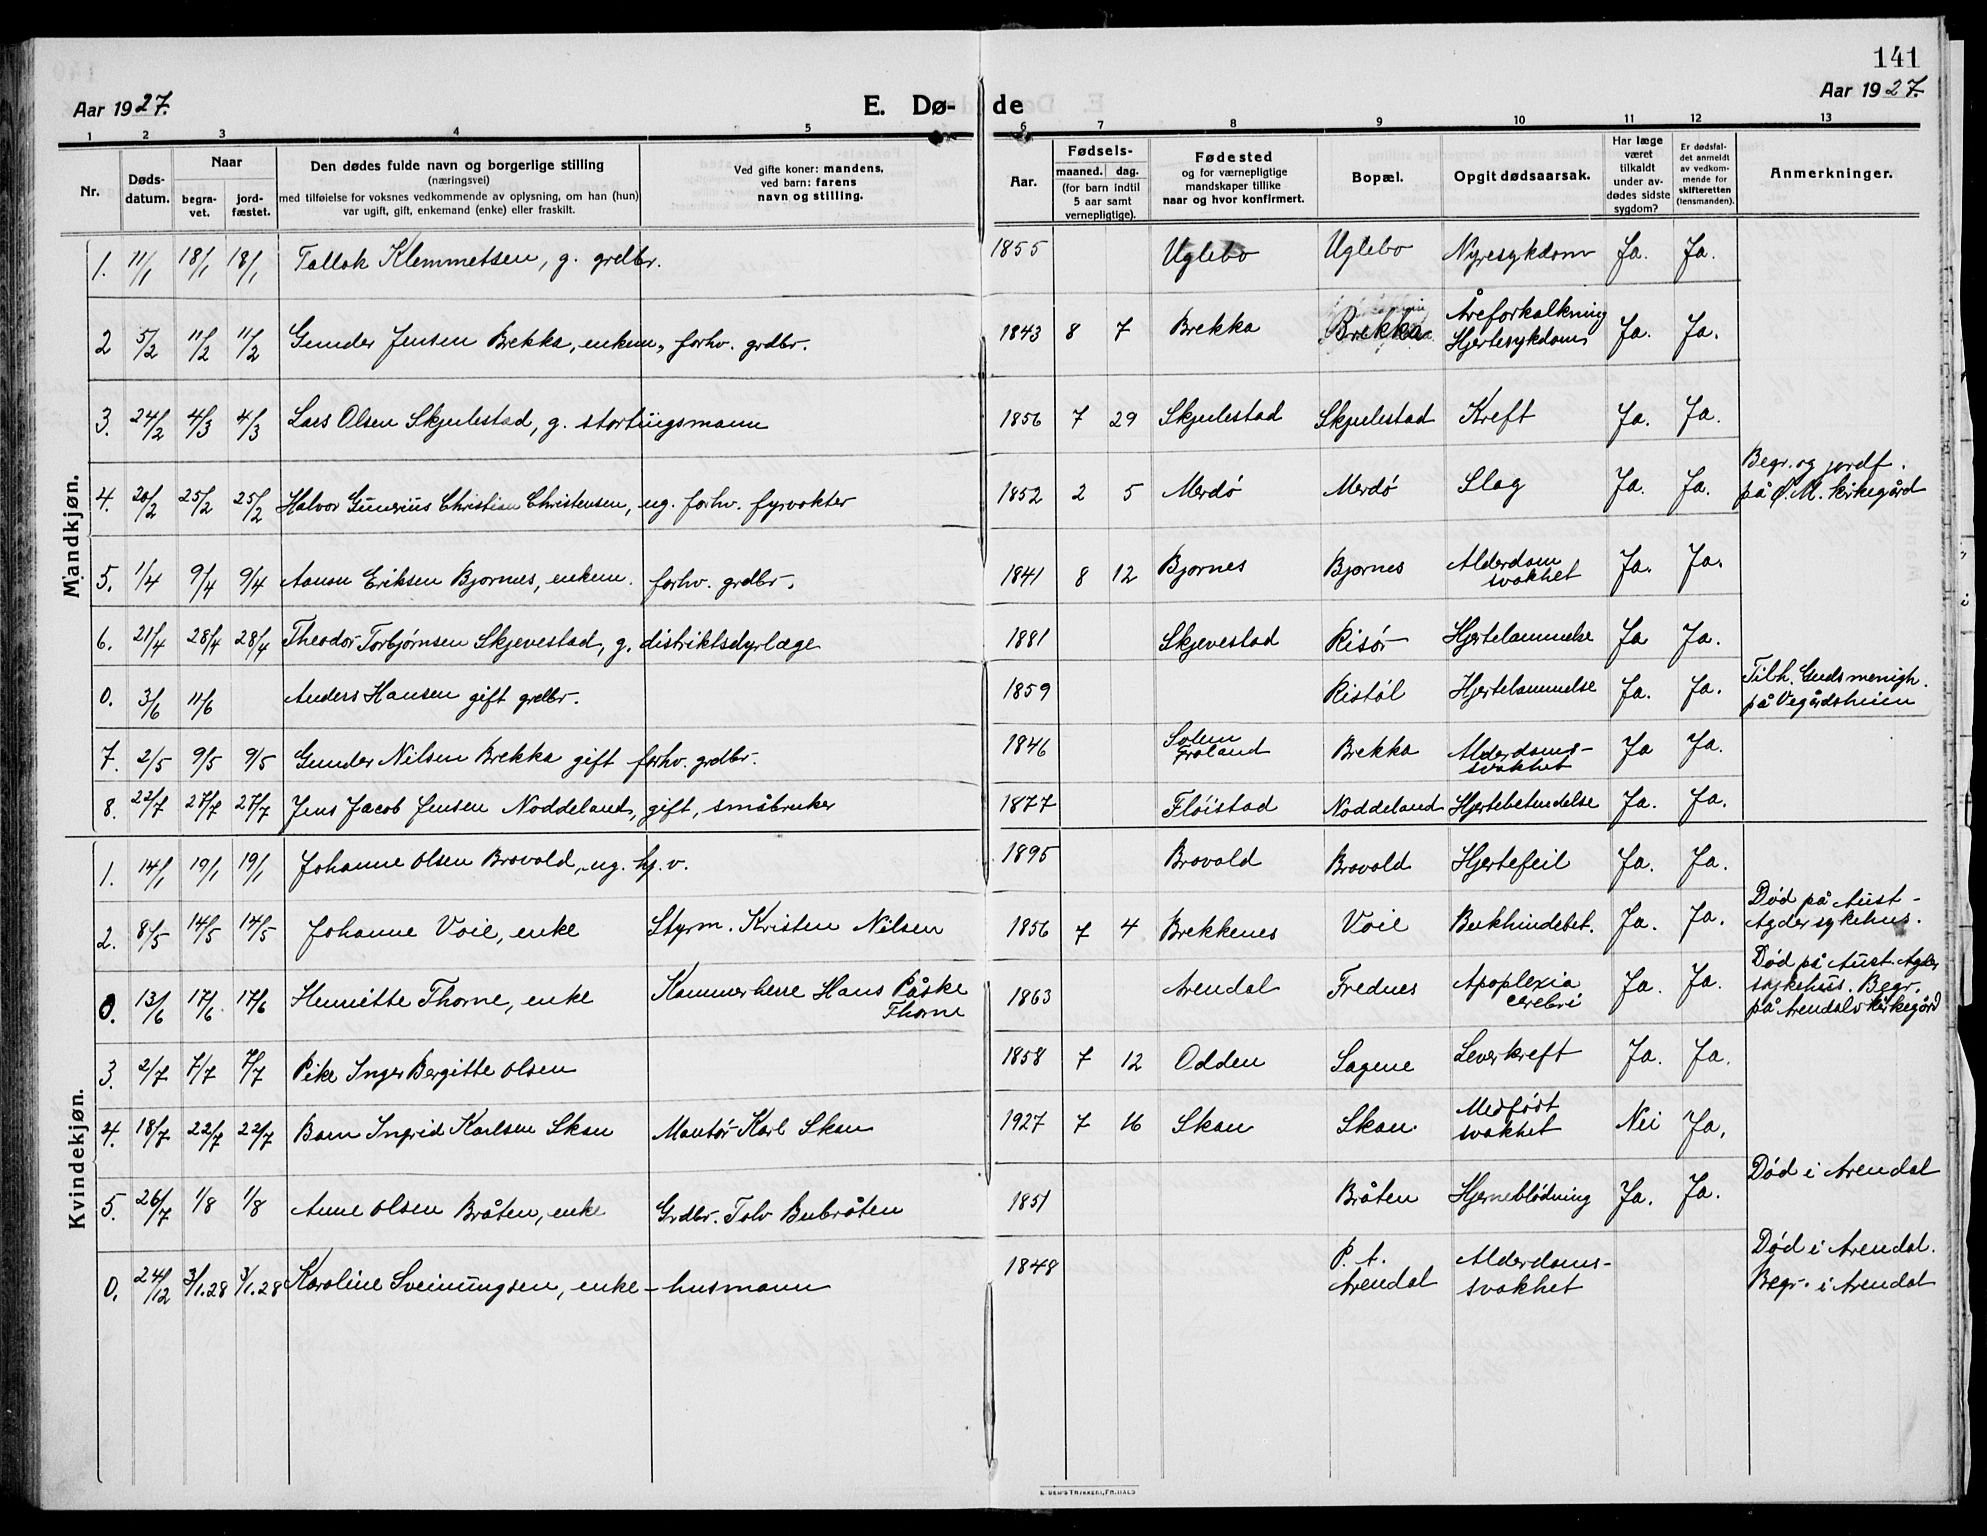 141
Aar 1927.
E. Dø-
de
Aar 1927.
1 2 3 4 5 6 7 8 9 10 11 12 13
Nr.
Døds-
datum.
Naar
begra-
vet.
jord-
fæstet.
Den dødes fulde navn og borgerlige stilling
(næringsvei)
med tilføielse for voksnes vedkommende av oplysning, om han (hun)
var ugift, gift, enkemand (enke) eller fraskilt.
Ved gifte koner: mandens,
ved barn: farens
navn og stilling.
Aar.
Fødsels-
maaned. dag.
(for barn indtil
5 aar samt
vernepligtige).
Fødested
og for værnepligtige
mandskaper tillike
naar og hvor konfirmert.
Bopæl.
Opgit dødsaarsak.
Har læge
været
tilkaldt
under av-
dødes sidste
sygdom?
Er dødsfal-
det anmeldt
av vedkom-
mende for
skifteretten
(lensmanden).
Anmerkninger.
Mandkjøn.
1. 11/1 18/1 18/1 Tallak Klemmetsen, g. grdbr. 1855 Uglebo Uglebo Nyresykdom Ja. Ja.
2 5/2 11/2 11/2 Gunder Jensen Brekka, enkem, forhv. grdbr. 1843 8 7 Brekka Brekka Åreforkalkning Ja. Ja.
Hjertesykdom
3. 24/2 4/3 4/3 Lars Olsen Skjulestad, g. stortingsmann 1856 7 29 Skjulestad Skjulestad Kreft Ja. Ja.
4. 20/2 25/2 25/2 Halvor Gunerius Christian Christensen, ug. forhv. fyrvokter 1852 2 5 Merdö Merdö Slag Ja. Ja. Begr. og jordf.
på Ø. M. kirkegård
5. 1/4 9/4 9/4 Aanon Eriksen Bjornes, enkem. forhv. grdbr. 1841 8 12 Bjornes Bjornes Alderdom Ja. Ja.
svakhet
6. 21/4 28/4 28/4 Theodor Torbjørnsen Skjevestad, g. distriktsdyrlæge 1881 Skjevestad Risör Hjertelammelse Ja Ja.
0. 3/6 11/6 Anders Hansen gift grdbr. 1859 Ristöl Hjertelammelse Ja. Ja. Tilh. Guds menigh.
på Vegårdsheien
7. 2/5 9/5 9/5 Gunder Nilsen Brekka gift forhv. grdbr. 1846 Solem
Froland Brekka Alderdoms-
svakhet Ja Ja.
8. 22/7 27/7 27/7 Jens Jacob Jensen Noddeland, gift, småbruker 1877 Flöistad Noddeland Hjertebetendelse Ja. Ja.
Kvindekjøn.
1. 14/1 19/1 19/1 Johanne Olsen Brovold, ug. hj. v. 1895 Brovold Brovold Hjertefeil Ja. Ja.
2. 8/5 14/5 14/5 Johanne Voie, enke Styrm. Kristen Nilsen 1856 7 4 Brekkenes Voie Bukhindebet. Ja. Ja. Död på Aust-
Agder sykehus.
0. 13/6 17/6 17/6 Henriette Thorne, enke Kammerherre Hans Påske
Thorne 1863 Arendal Frednes Apoplexia
cerebri Ja. Ja. Död på Aust. Agder
sykehus. Begr.
på Arendals kirkegård
3. 2/7 7/7 7/7 Pike Inger Bergitte Olsen 1858 7 12 Odden Sagene Leverkreft Ja. Ja.
4. 18/7 22/7 22/7 Barn Ingrid Karlsen Skan Montör Karl Skan 1927 7 16 Skan Skan Medfödt
svakhet Nei Ja.
5. 26/7 1/8 1/8 Anne Olsen Bråten, enke Grdbr. Tolv Bubråten 1851 Bråten Hjerneblödning Ja. Ja. Död i Arendal
0. 24/12 3/1.28 3/1.28 Karoline Sveinungsen, enke - husmann 1848 P. t.
Arendal Alderdoms-
svakhet Död i Arendal.
Begr. i Arendal